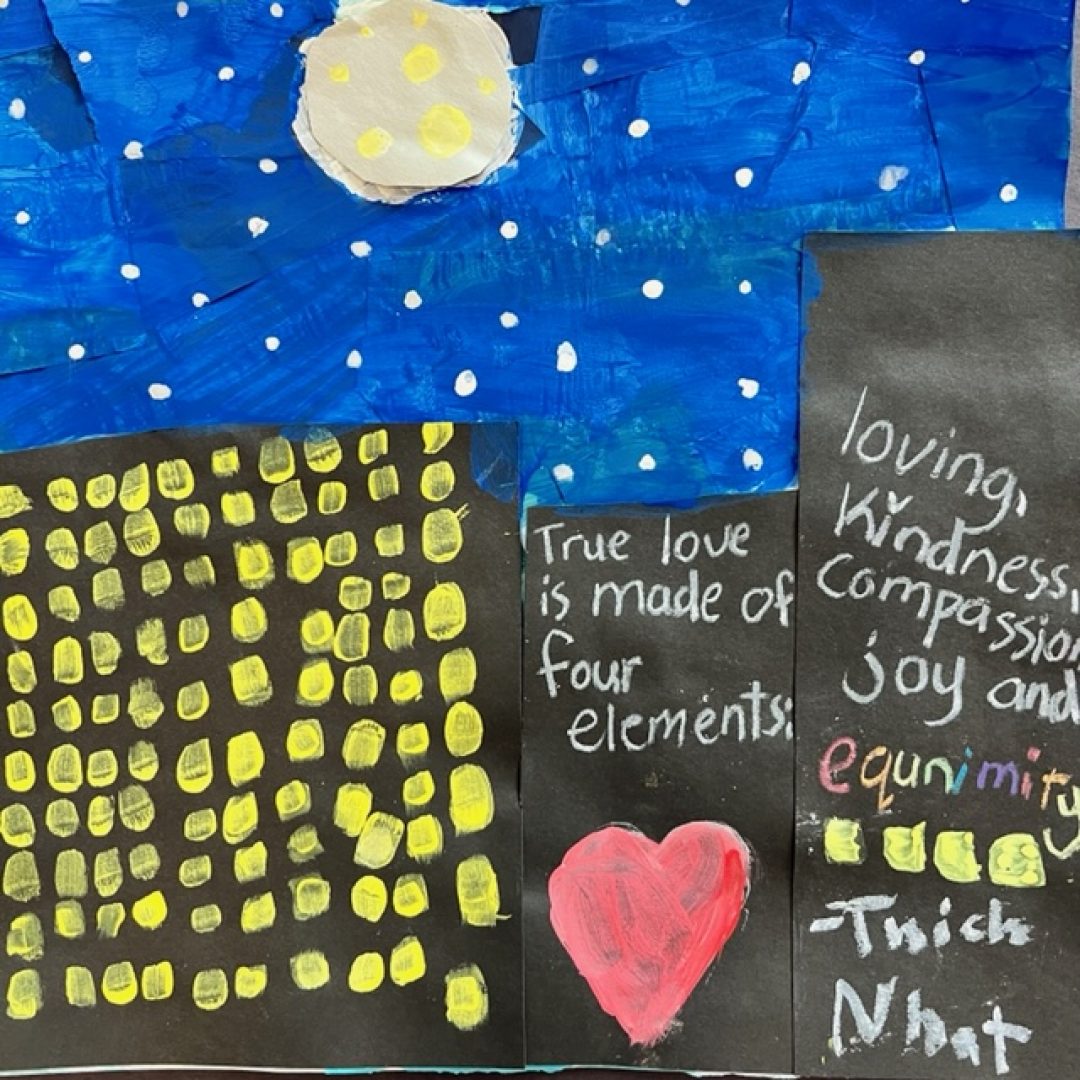 True love
is made of
four
elements:
loving,
Kindness,
compassion
joy and
equnimity
-Tnich
Nhat